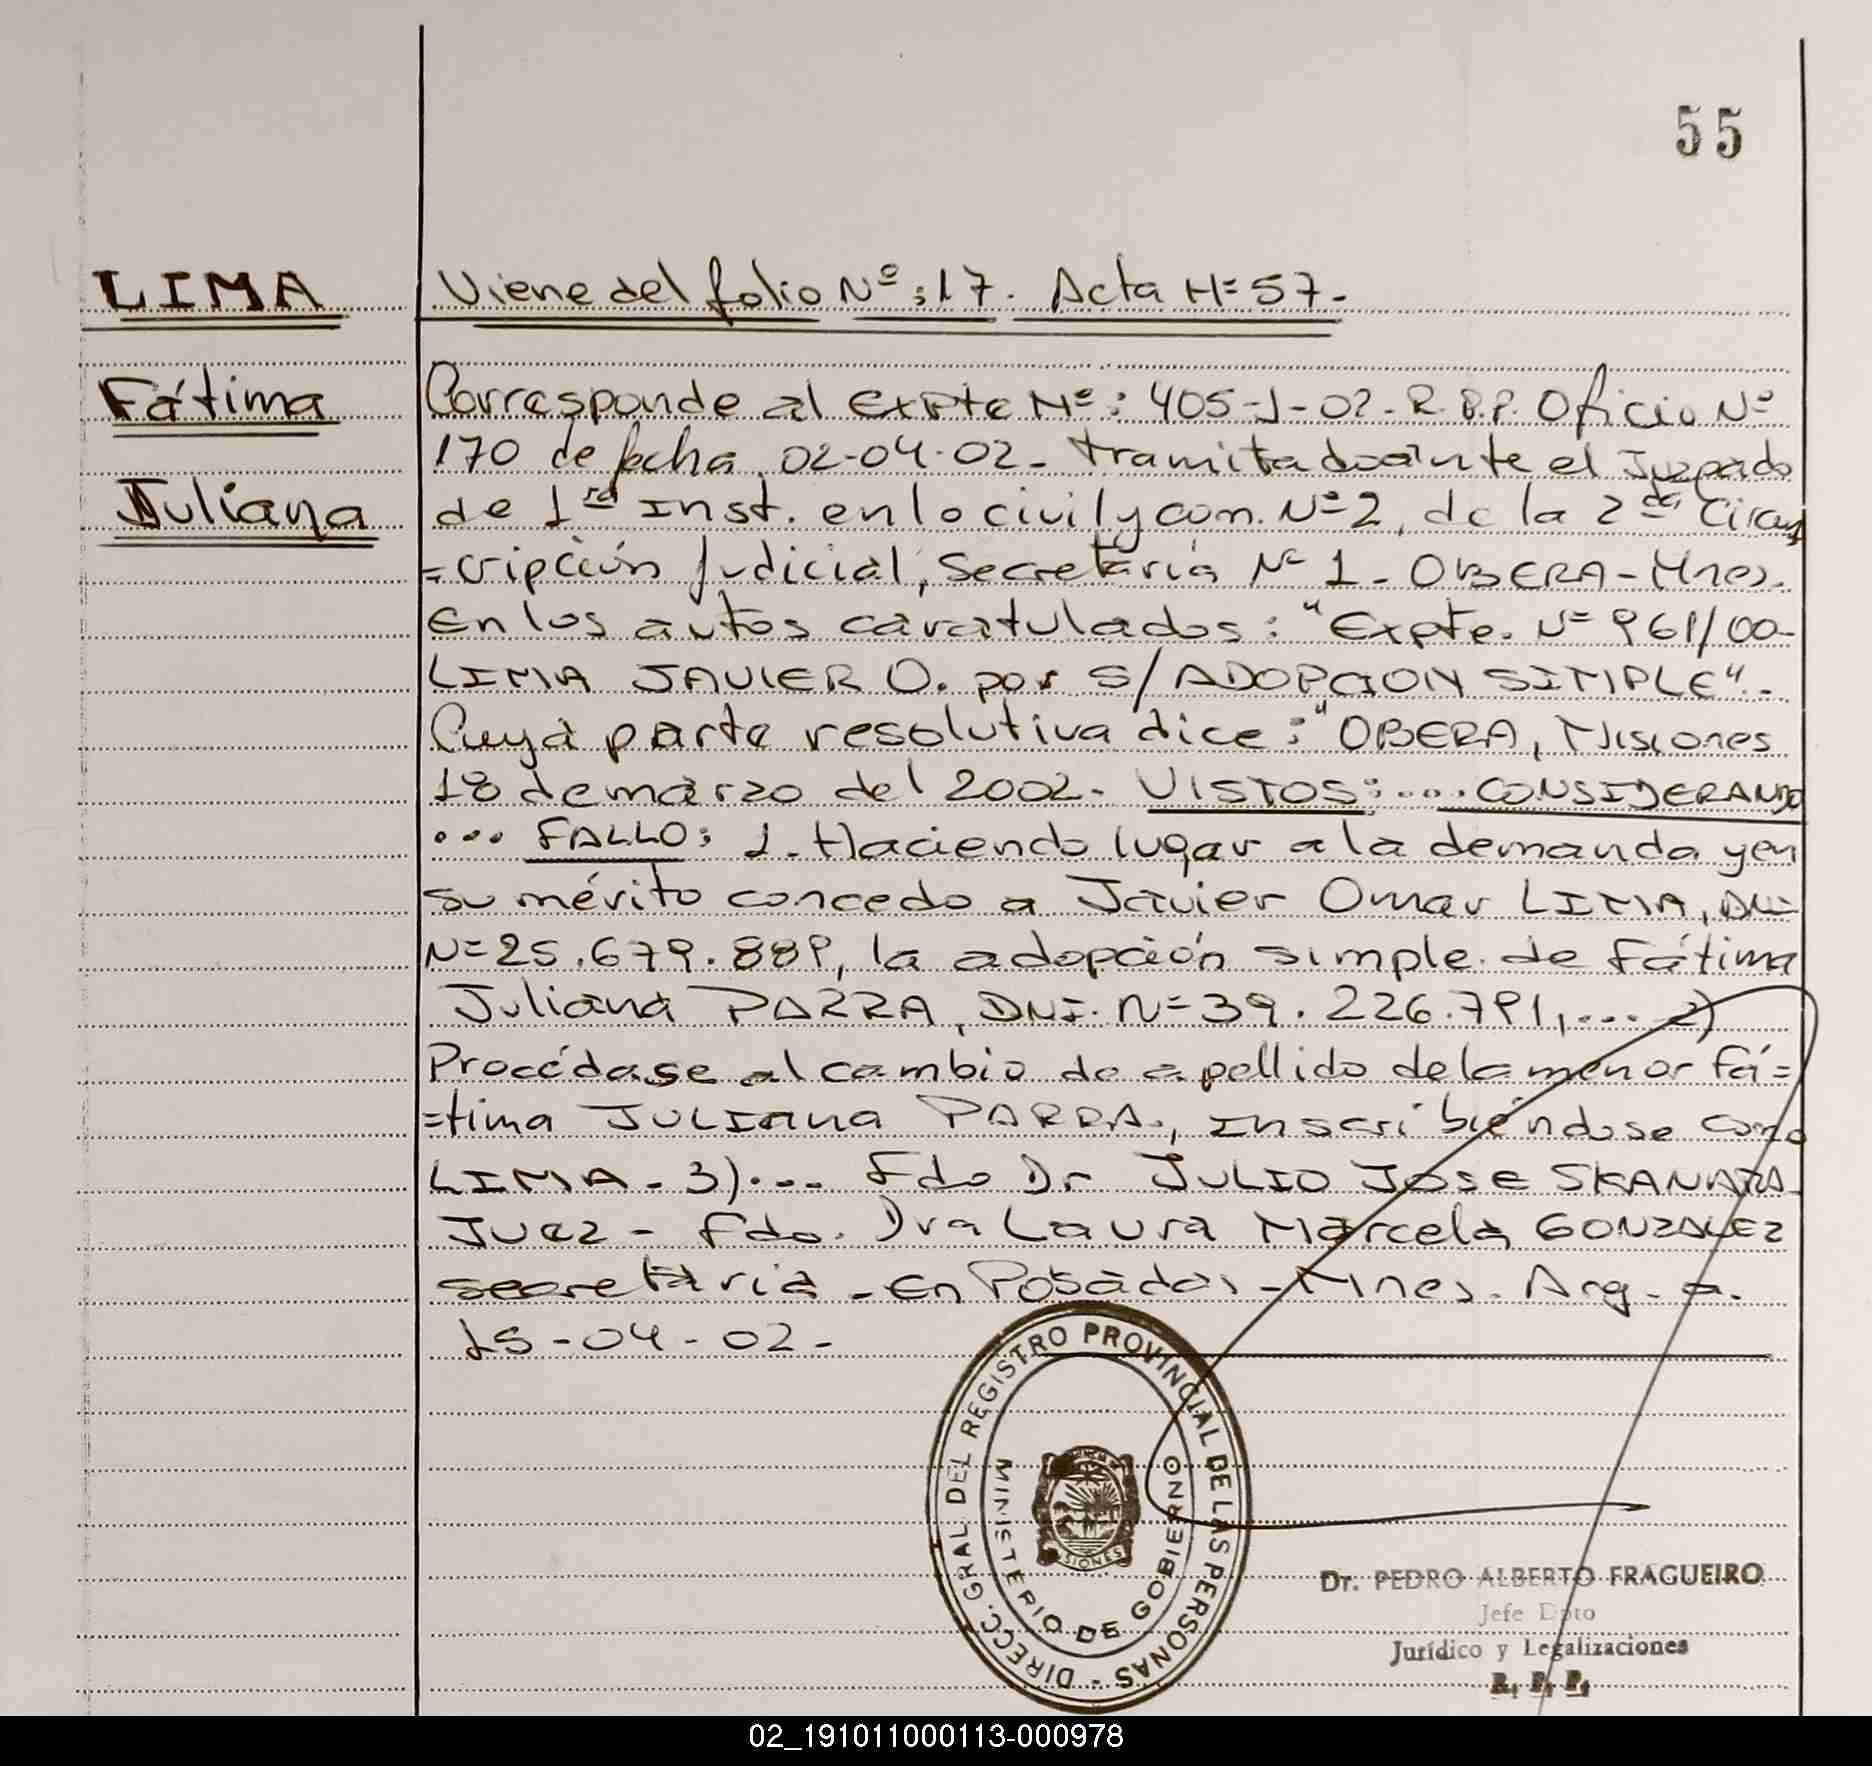 55
LIMA
Viene del folio Nº: 17. Acta Nº 57.-
Fátima
Corresponde al Expte Nº: 405-J-02-R.P.P. Oficio Nº
170 de fecha 02-04-02- tramitado ante el Juzgado
Juliana
de 1ra Inst. en lo civil y com. Nº 2, de la 2da Circuns
=cripción Judicial, Secretaría Nº 1- OBERA-Mnes.
En los autos caratulados: "Expte. Nº 961/00-
LIMA JAVIER O. por S/ADOPCION SIMPLE".-
Cuya parte resolutiva dice: "OBERA, Misiones
18 de marzo del 2002- VISTOS:... CONSIDERANDO
... FALLO: 1.- Haciendo lugar a la demanda y en
su mérito concedo a Javier Omar LIMA, DNI
Nº 25.679.889, la adopción simple de Fátima
Juliana PARRA, DNI. Nº 39.226.791,... 2)
Procédase al cambio de apellido de la menor Fá=
=tima JULIana PARRA., inscribiéndose como
LIMA- 3)... Fdo Dr JULIO JOSE
JUEZ- Fdo. Dra Laura Marcela GONZALEZ
secretaria.- En Posadas-Mnes. Arg.- a.
15-04-02-
DIRECC. GRAL DEL REGISTRO PROVINCIAL DE LAS PERSONAS -
MINISTERIO DE GOBIERNO
MISIONES
Dr. PEDRO ALBERTO FRAGUEIRO
Jefe Dpto
Jurídico y Legalizaciones
R. P. P.
02_191011000113-000978